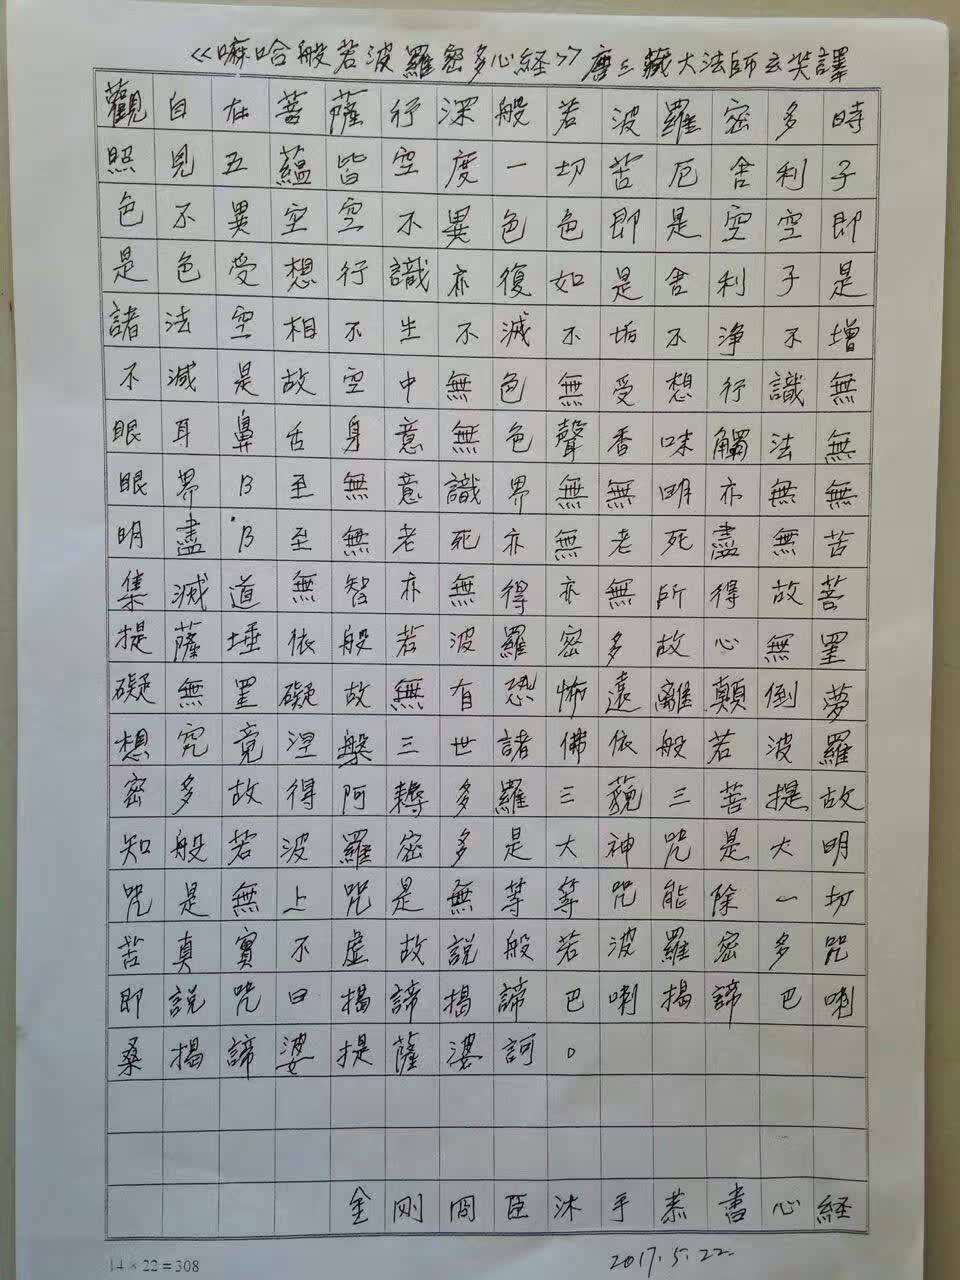 《嘛哈般若波羅密多心経》唐三藏大法師玄奘譯
觀自在菩薩行深般若波羅密多時
照見五蘊皆空度一切苦厄舍利子
色不異空空不異色色即是空空即
是色受想行識亦復如是舍利子是
諸法空相不生不滅不垢不淨不增
不減是故空中無色無受想行識無
眼耳鼻舌身意無色聲香味觸法無
眼界乃至無意識界無無明亦無無
明盡乃至無老死亦無老死盡無苦
集滅道無智亦無得亦無所得故菩
提薩埵依般若波羅密多故心無罣
礙無罣礙故無有恐怖遠離顛倒夢
想究竟涅槃三世諸佛依般若波羅
密多故得阿耨多羅三藐三菩提故
知般若波羅密多是大神咒是大明
咒是無上咒是無等等咒能除一切
苦真實不虛故說般若波羅密多咒
即說咒曰揭諦揭諦巴喇揭諦巴喇
桑揭諦婆提薩婆訶。
金剛岡臣沐手恭書心経
2017.5.22.
14×22=308